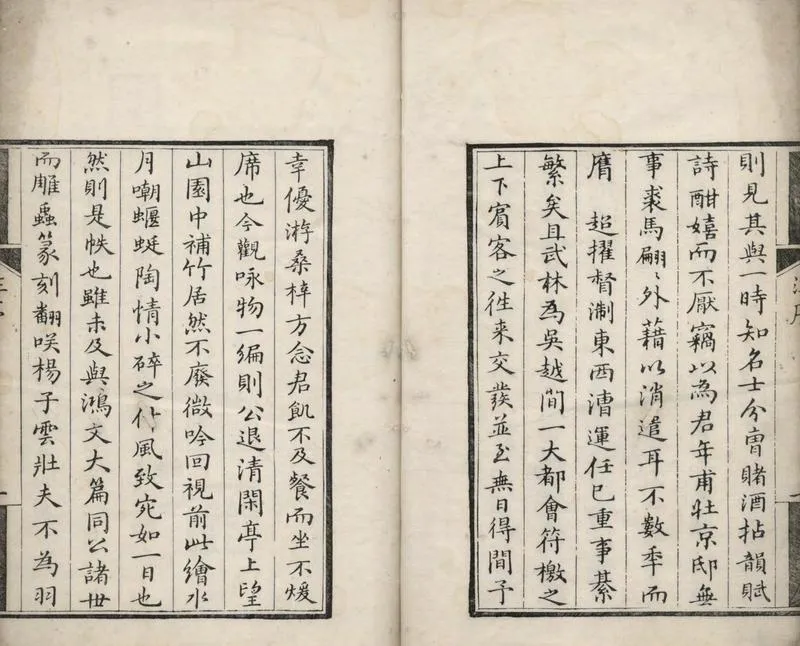 則見其與一時知名士分曺賭酒拈韻賦
詩酣嬉而不厭竊以為君年甫壯京邸無
事裘馬翩〻外藉以消遣耳不數年而
膺　超擢督淛東西漕運任已重事綦
繁矣且武林為吳越間一大都會符檄之
上下賓客之往来交發並至無日得間予
幸優游桑梓方念君飢不及餐而坐不煖
席也今觀咏物一編則公退清閑亭上望
山園中補竹居然不廢微吟回視前此繪水
月嘲蝘蜓陶情小碎之作風致宛如一日也
然則是帙也雖未及與鴻文大篇同公諸世
而雕蟲篆刻翻咲楊子雲壯夫不為羽